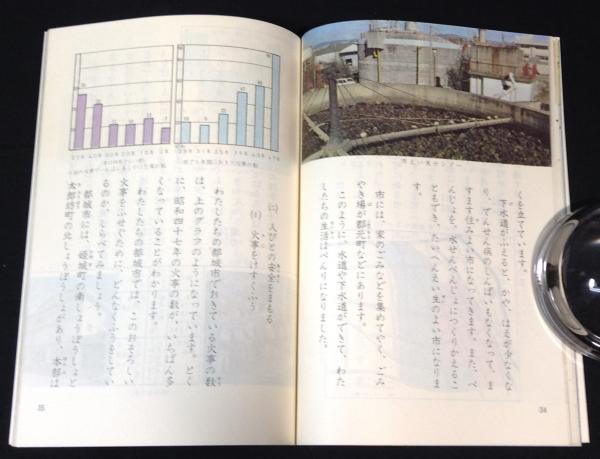 くを立てています。
下水道がふえると、かや、はえが少なくな
り、でんせん病のしんぱいもなくなって、ま
すます住みよい市になってきます。また、べ
んじょを、水せんべんじょにつくりかえるこ
ともでき、たいへんえい生のよい市になりま
す。
市には、家のごみなどを集めてやく、ごみ
やき場が郡元町などにあります。
このように、水道や下水道ができて、わた
したちの生活はべんりになりました。
34
㈡ 人びとの安全をまもる
⑴ 火事をけすくふう
わたしたちの都城市でおきている火事の数
は、上のグラフのようになっています。とく
に、昭和四十七年の火事の数が、いちばん多
くなっていることがわかります。
わたしたちの都城市では、このおそろしい
火事をふせぐために、どんなくふうをしてい
るのか、しらべてみましょう。
都城市には、姫城町の南しょうぼうしょと
太郎坊町の北しょうぼうしょがあり、本部は
35